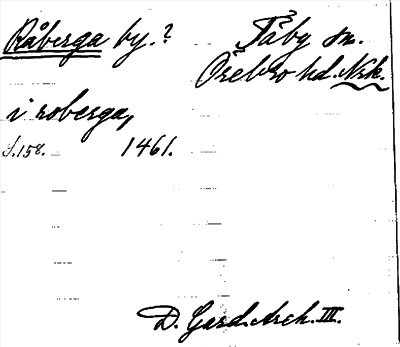 Råberga by.? Täby sn.
Örebro hd. Nrk.
i roberga,
S. 158. 1461.
D. Gard. Arch. III.